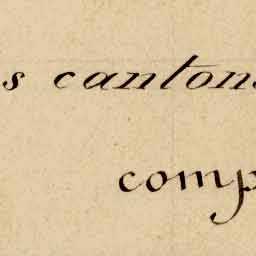 s cantons
comp